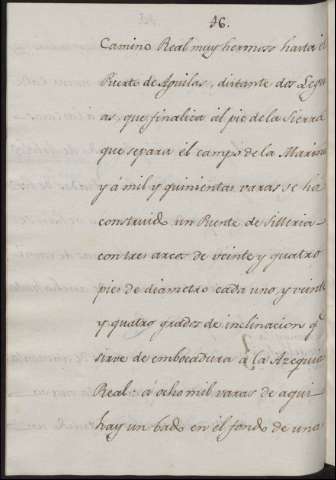 46.
Camino Real muy hermoso hasta él
Puerto de Aguilas, distante dos Legu-
as, que finaliza al pie de la Sierra
que separa él campo de la Marina
y á mil y quinientas varas se ha
construido un Puente de Silleria
con tres arcos de veinte y quatro
pies de diametro cada uno y veinte
y quatro grados de inclinacion q.ͤ
sirve de embocadura á la Azequia
Real: á ocho mil varas de aqui
hay un bado en él fondo de una